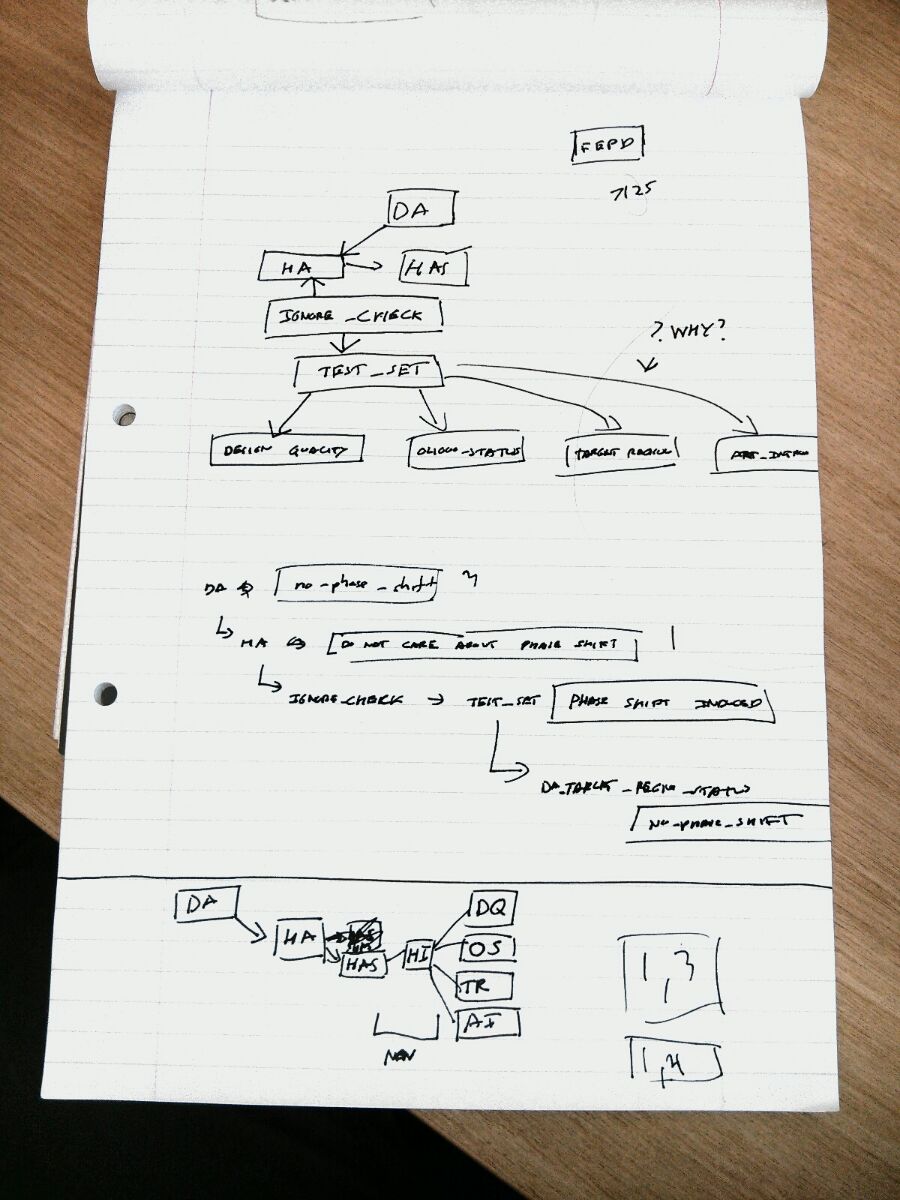 FEPD
7125
DA
HA
HAS
IGNORE_CHECK
? WHY?
TEST_SET
DESIGN QUALITY
OLIGO_STATUS
TARGET REGION
DA
no_phase_shift
HA
DO NOT CARE ABOUT PHASE SHIFT
IGNORE_CHECK → TEST_SET PHASE SHIFT INDUCED
DA_TARGET_REGION_STATUS
NO_PHASE_SHIFT
DA
DQ
HA
HAS
HI
OS
TR
AI
1,3
1,4